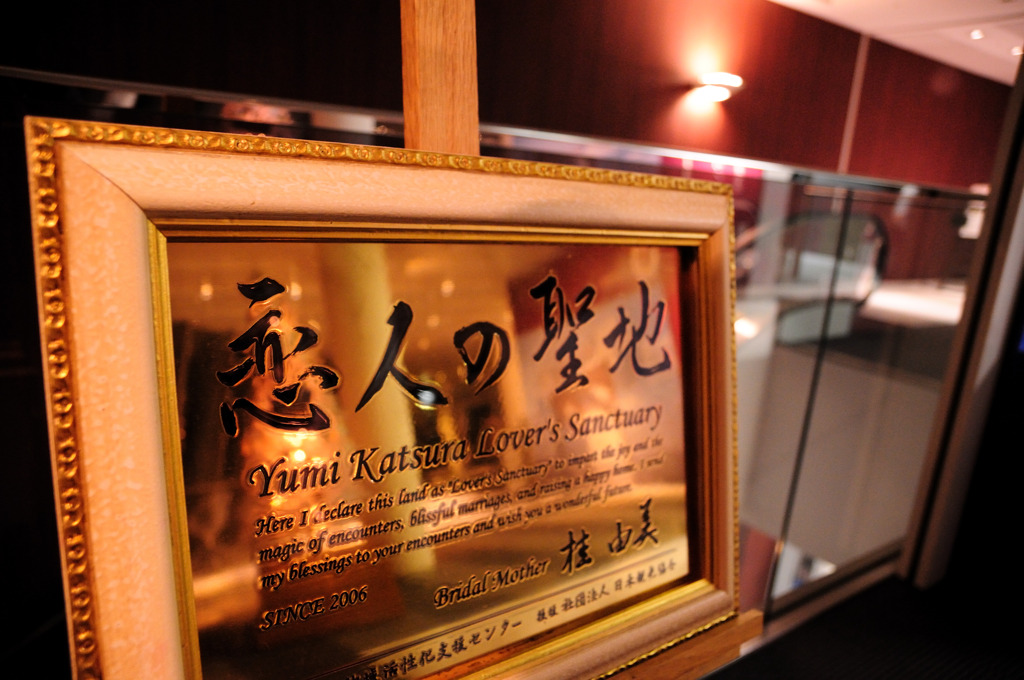 恋人の聖地
Yumi Katsura Lover's Sanctuary
Here I declare this land as "Lover's Sanctuary" to impart the joy and the
magic of encounters, blissful marriages, and raising a happy home. I send
my blessings to your encounters and wish you a wonderful future.
SINCE 2006 Bridal Mother 桂 由美
活性化支援センター 社団法人 日本観光協会